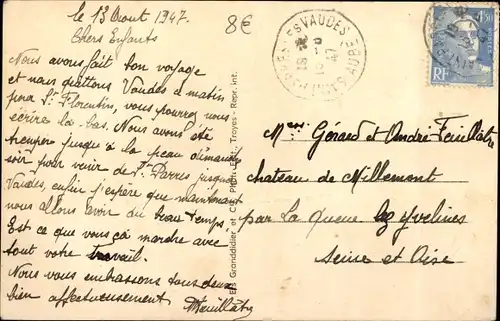 le 13 Aout 1947.
8€
Chers Enfants
Nous avons fait bon voyage
et nous quittons Vaudes ce matin
pour St Florentin, vous pourrez nous
écrire là-bas. Nous avons été
trempés jusqu'à la peau dimanche
soir pour venir de St Parres jusqu'à
Vaudes, enfin j'espère que maintenant
nous allons avoir du beau temps.
Est ce que vous ça marche avec
tout votre travail.
Nous vous embrassons tous deux
bien affectueusement
Ets Granddidier et Cie, Troyes - Repr. int.
VAUDES
AUBE
18
47
RF
Gérard et André
château de Millemont
par La Queue lez Yvelines
Seine et Oise